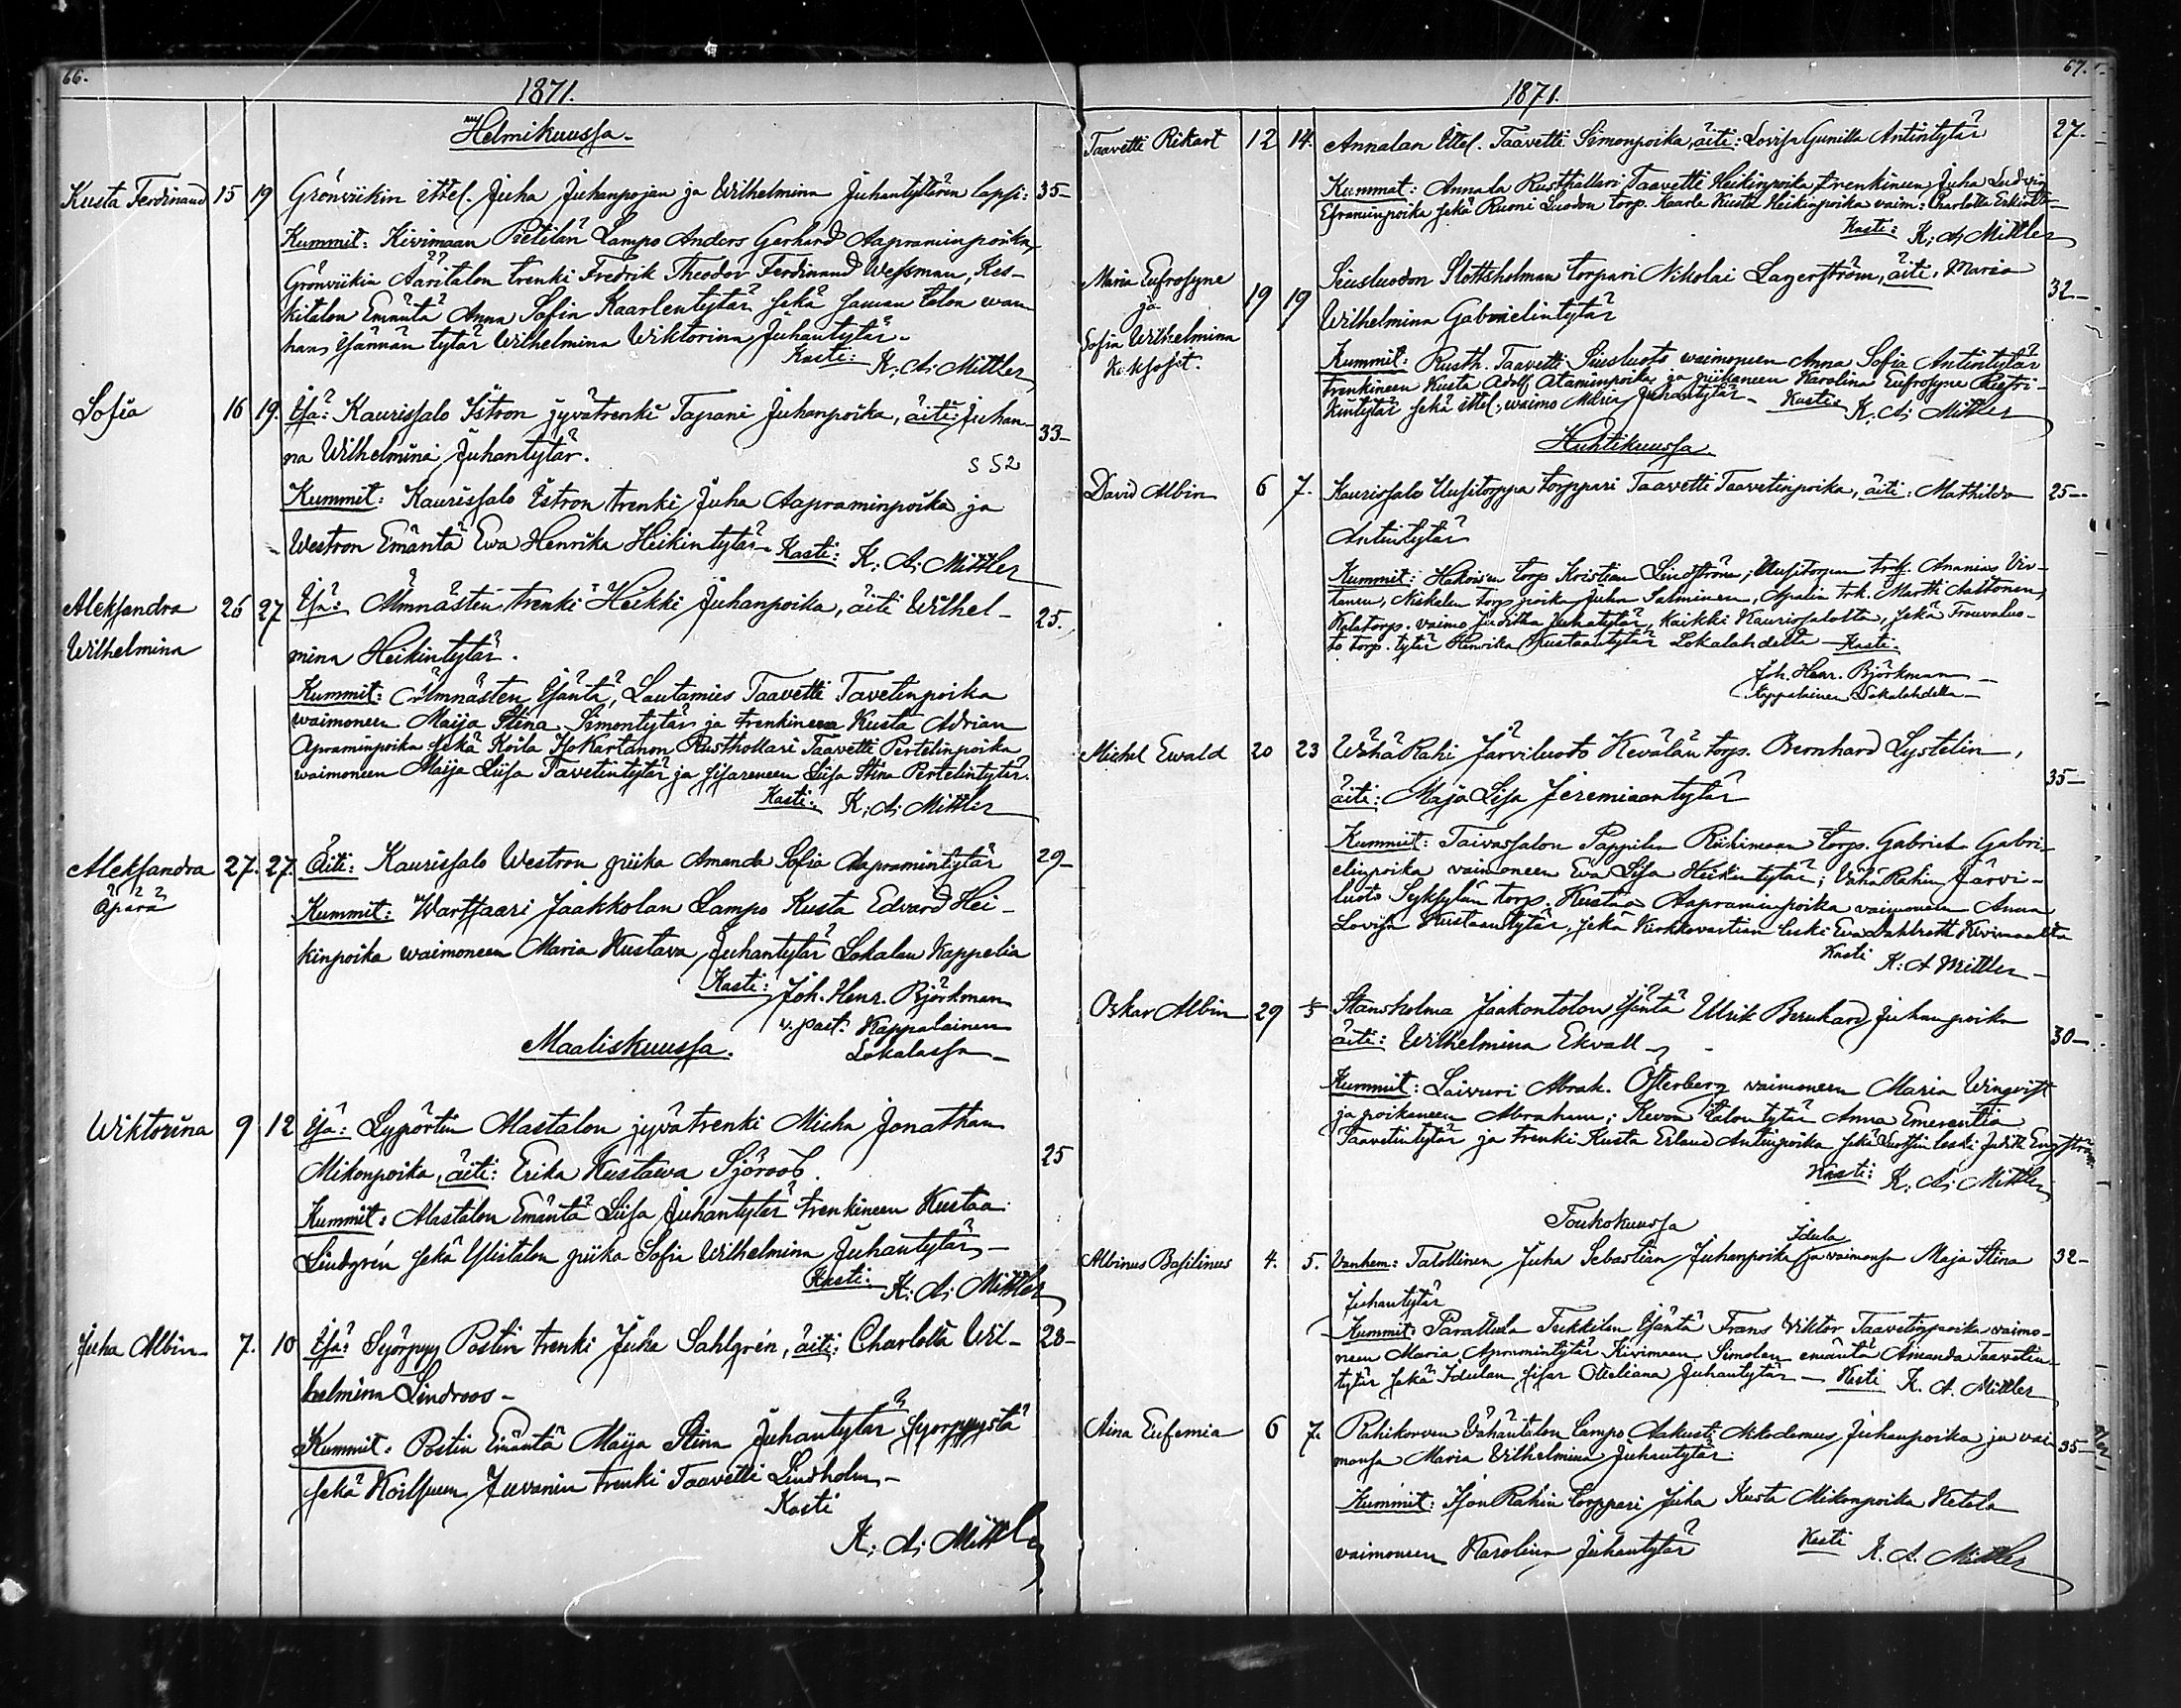 66.
1871.
Helmikuussa.
Kusta Ferdinand 15 19 Grönviikin ittel. Juha Juhanpojan ja Wilhelmina Juhantyttären lapsi: 35
Kummit: Kivimaan Pietilän Lampo Anders Gerhard Aapraminpoika,
Grönviikin Ääritalon trenki Fredrik Theodor Ferdinand Wessman, Kes-
kitalon Emäntä Anna Sofia Kaarlentytär sekä saman talon wan
han Isännän tytär Wilhelmina Wiktorina Juhantytär.
Kasti: K. A. Mittler
Sofia 16 19. Isä: Kaurissalo Iströn jyvätrenki Tapani Juhanpoika, äiti: Juhan- 33
na Wilhelmina Juhantytär.
Kummit: Kaurissalo Iströn trenki Juha Aapraminpoika ja
Weströn Emäntä Ewa Henrika Heikintytär. Kasti: K. A. Mittler
Aleksandra Wilhelmina 26 27 Isä: trenki Heikki Juhanpoika, äiti Wilhel- 25.
mina Heikintytär.
Kummit: Isäntä, Lautamies Taavetti Tavetinpoika
waimoneen Maija Stina Simontytär ja trenkineen Kusta Adrian
Apraminpoika sekä Koila Isokartanon Rusthollari Taavetti Pertelinpoika
waimoneen Maija Liisa Tavetintytär ja sisareneen Liisa Stina Pertelintytär.
Kasti: K. A. Mittler
Aleksandra Äpärä 27. 27. Äiti: Kaurissalo Westron piika Amanda Sofia Aapramintytär 29
Kummit: Wartsaari Jaakkolan Lampo Kusta Edvard Hei-
kinpoika waimoneen Maria Kustava Juhantytär Lokalan Kappelia
Kasti: Joh. Henr. Björkman
v. past. Kappalainen
Lokalassa
Maaliskuussa.
Wiktoriina 9 12 Isä: Lypörtin Alastalon jyvätrenki Micha Jonathan
Mikonpoika, äiti: Erika Kustawa Sjöroos. 25
Kummit: Alastalon Emäntä Liisa Juhantytär trenkineen Kustaa
Lindgrén sekä Ylistalon piika Sofia Wilhelmina Juhantytär
Kasti: K. A. Mittler
Juha Albin 7. 10 Isä: Postin trenki Juha Sahlgrén, äiti: Charlotta Wil- 28
helmina Lindroos
Kummit: Postin Emäntä Maija Stina Juhantytär
sekä trenki Taavetti Lindholm
Kasti
K. A. Mittler
67.
1871.
Taavetti Rikart 12 14. Annalan Ittel. Taavetti Simonpoika, äiti: Lovisa Gunilla Antintytär 27.
Kummit: Annala Rusthollari Taavetti Heikinpoika trenkineen Juha Ludvig
Efraiminpoika sekä Ruoni Luodon torp. Kaarle Kusta Heikinpoika vaim: Charlotta
Kasti: K. A. Mittler
Maria Eufrosyne ja Sofia Wilhelmina Kaksoset. 19 19 Siusluodon Slottsholman torpari Nikolai Lagerström, äiti: Maria 32
Wilhelmina Gabrielintytär
Kummit: Rusth. Taavetti Siusluoto waimoneen Anna Sofia Antintytär
trenkineen Kusta Adolf Ataminpoika ja piikaneen Karolina Eufrosyne
sekä ittel. waimo Maria Juhantytär. Kasti: K. A. Mittler
Huhtikuussa
David Albin 6 7. Kaurissalo Uusitorppa torppari Taavetti Taavetinpoika, äiti: Mathilda 25
Antintytär
Kummit: Hakoisen torp Kristian Lindström, Uusitorpan Ananias Vir-
tanen, Niskalan torp poika Juha Salminen, trk. Matti Aaltonen,
Kalatorp. vaimo Juditha Juhantytär, kaikki Kaurissalolta, sekä Trouvaluo-
to torp. tytär Henrika Kustaantytär Lokalahdella Kasti:
Joh. Henr. Björkman
Kappalainen Lokalahdella
Michel Ewald 20 23 Wähä Rahi Järviluoto Kevälän torp. Bernhard Lystelin,
äiti: Maja Lisa Jeremiaantytär 35
Kummit: Taivassalon Pappilan Riihimaan torp. Gabriel Gabri-
elinpoika vaimoneen Ewa Lisa Heikintytär; Vähä Rahin Järvi-
luoto Syksylän torp. Kustaa Aapraminpoika vaimoneen Anna
Lovisa Kustaantytär, sekä Kirkkovartian leski Ewa Dahlroth Kivimaalta
Kasti K. A Mittler
Oskar Albin 29 Stansholma Jaakontalon Isäntä Ulrik Bernhard Juhanpoika
äiti: Wilhelmina Ekvall 30
Kummit: Laivuri Abrah. Österberg vaimoneen Maria Winqvist
ja poikaneen Abraham; talon tytär Anna Emerentia
Taavetintytär ja trenki Kusta Erland Antinpoika sekä leski Judith Engström
Kasti: K. A. Mittler
Toukokuussa
Idula
Albinus Basilinus 4. 5. Vanhem: Talollinen Juha Sebastian Juhanpoika ja vaimonsa Maja Stina 32
Juhantytär
Kummit: Parattula Tukkilan Isäntä Frans Viktor Taavetinpoika vaimo-
neen Maria Apramintytär Kivimaan Simolan emäntä Amanda Taavetin-
tytär sekä Idulan sisar Otteliana Juhantytär Kasti K. A. Mittler
Aina Eufemia 6 7. Rahikorven Vähäntalon Lampo Aakusti Nikodemus Juhanpoika ja vai- 35
monsa Maria Wilhelmina Juhantytär.
Kummit: Ison Rahin torppari Juha Kusta Mikonpoika Ketola
vaimoneen Karolina Juhantytär Kasti K. A. Mittler